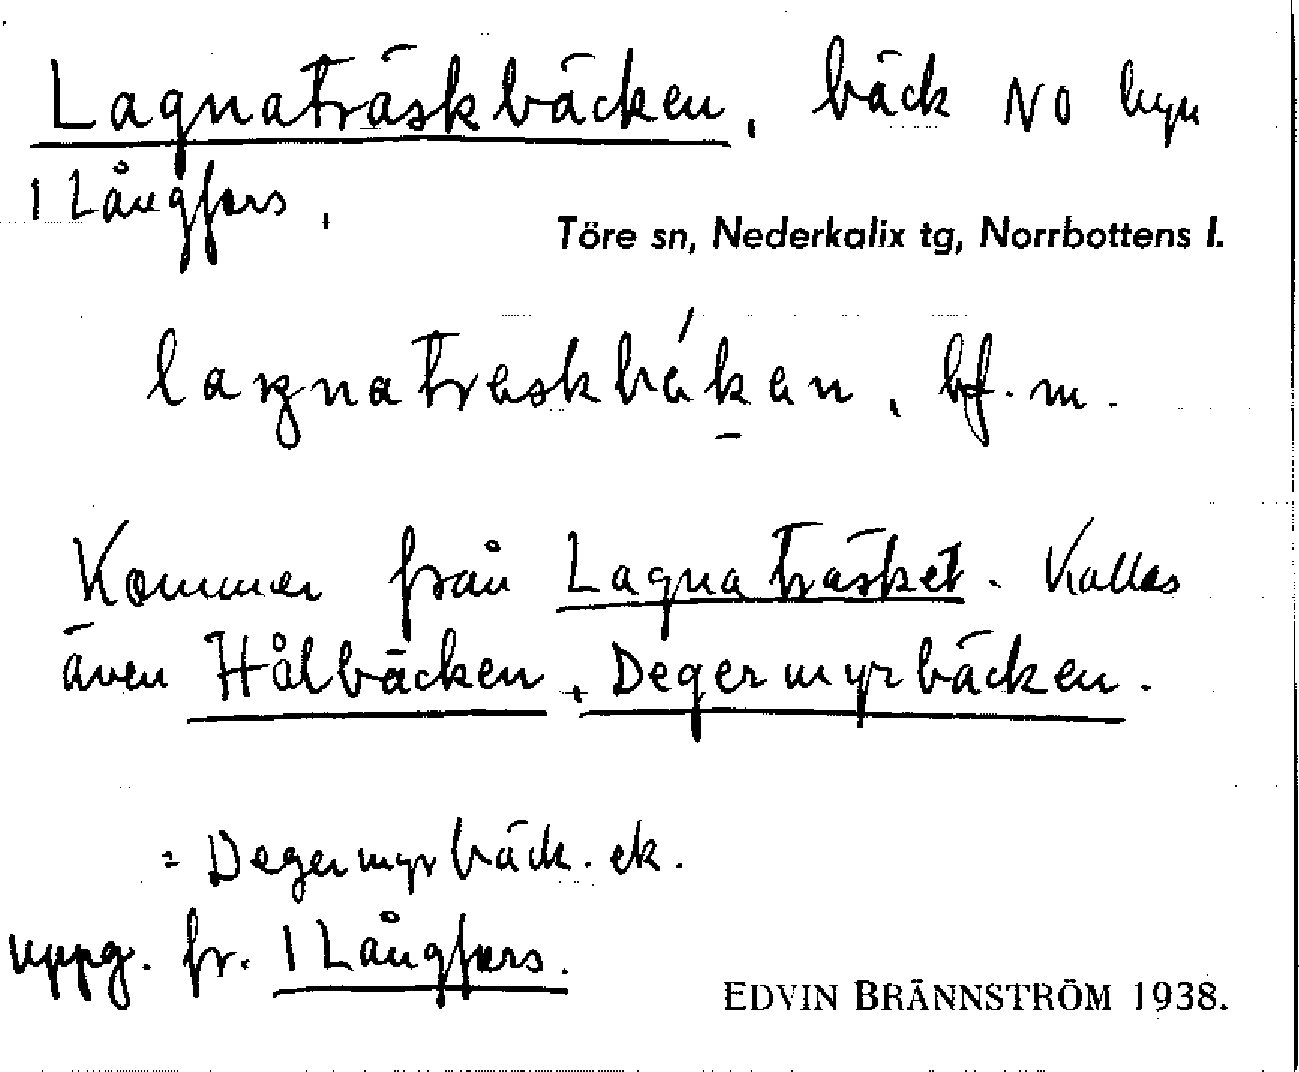 Lagnaträskbäcken, bäck NO hgn
1 Långfors,
Töre sn, Nederkalix tg, Norrbottens l.
bf. m.
Kommer från Lagnaträsket. Kallas
även Hålbäcken, Degermyrbäcken.
= Degermyrbäck. ek.
uppg. fr. 1 Långfors.
EDVIN BRÄNNSTRÖM 1938.